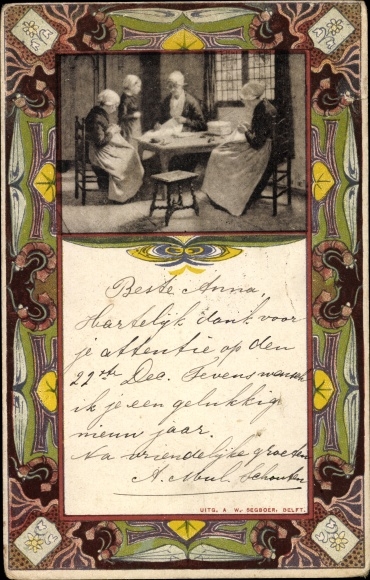 Beste Anna,
Hartelijk dank voor
je attentie op den
22ste Dec. Tevens wensch
ik je een gelukkig
nieuw jaar.
Na vriendelijke groeten
A. Schouten
UITG. A. W. SEGBOER, DELFT.